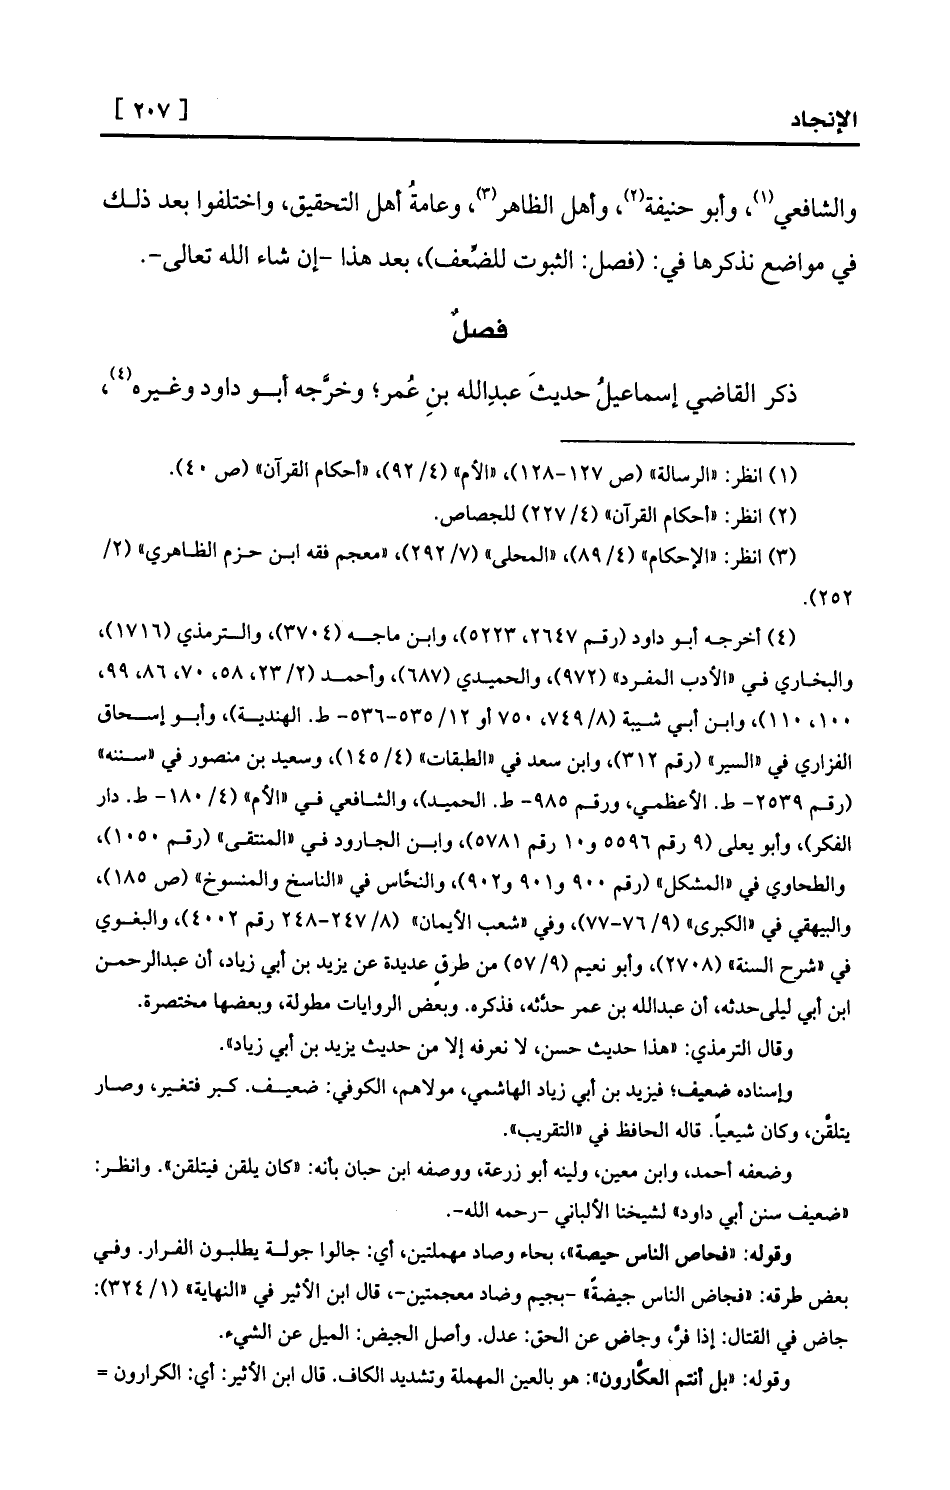 الإنجاد [ ٢٠٧ ]
والشافعي(١)، وأبو حنيفة(٢)، وأهل الظاهر(٣)، وعامةُ أهل التحقيق، واختلفوا بعد ذلك
في مواضع نذكرها في: (فصل: الثبوت للضِّعف)، بعد هذا -إن شاء الله تعالى-.
فصلٌ
ذكر القاضي إسماعيلُ حديثَ عبدِالله بنِ عُمر؛ وخرَّجه أبو داود وغيره(٤)،
(١) انظر: «الرسالة» (ص ١٢٧-١٢٨)، «الأم» (٤/ ٩٢)، «أحكام القرآن» (ص ٤٠).
(٢) انظر: «أحكام القرآن» (٤/ ٢٢٧) للجصاص.
(٣) انظر: «الإحكام» (٤/ ٨٩)، «المحلى» (٧/ ٢٩٢)، «معجم فقه ابن حزم الظاهري» (٢/
٢٥٢).
(٤) أخرجه أبو داود (رقم ٢٦٤٧، ٥٢٢٣)، وابن ماجه (٣٧٠٤)، والترمذي (١٧١٦)،
والبخاري في «الأدب المفرد» (٩٧٢)، والحميدي (٦٨٧)، وأحمد (٢/ ٢٣، ٥٨، ٧٠، ٨٦، ٩٩،
١٠٠، ١١٠)، وابن أبي شيبة (٨/ ٧٤٩، ٧٥٠ أو ١٢/ ٥٣٥-٥٣٦- ط. الهندية)، وأبو إسحاق
الفزاري في «السير» (رقم ٣١٢)، وابن سعد في «الطبقات» (٤/ ١٤٥)، وسعيد بن منصور في «سننه»
(رقم ٢٥٣٩- ط. الأعظمي، ورقم ٩٨٥- ط. الحميد)، والشافعي في «الأم» (٤/ ١٨٠- ط. دار
الفكر)، وأبو يعلى (٩ رقم ٥٥٩٦ و١٠ رقم ٥٧٨١)، وابن الجارود في «المنتقى» (رقم ١٠٥٠)،
والطحاوي في «المشكل» (رقم ٩٠٠ و٩٠١ و٩٠٢)، والنحَّاس في «الناسخ والمنسوخ» (ص ١٨٥)،
والبيهقي في «الكبرى» (٩/ ٧٦-٧٧)، وفي «شعب الأيمان» (٨/ ٢٤٧-٢٤٨ رقم ٤٠٠٢)، والبغوي
في «شرح السنة» (٢٧٠٨)، وأبو نعيم (٩/ ٥٧) من طرقٍ عديدة عن يزيد بن أبي زياد، أن عبدالرحمن
ابن أبي ليلى حدثه، أن عبدالله بن عمر حدَّثه، فذكره. وبعض الروايات مطولة، وبعضها مختصرة.
وقال الترمذي: «هذا حديث حسن، لا نعرفه إلا من حديث يزيد بن أبي زياد».
وإسناده ضعيف؛ فيزيد بن أبي زياد الهاشمي، مولاهم، الكوفي: ضعيف. كبر فتغير، وصار
يتلقَّن، وكان شيعياً. قاله الحافظ في «التقريب».
وضعفه أحمد، وابن معين، ولينه أبو زرعة، ووصفه ابن حبان بأنه: «كان يلقن فيتلقن». وانظر:
«ضعيف سنن أبي داود» لشيخنا الألباني -رحمه الله-.
وقوله: «فحاص الناس حيصة»، بحاء وصاد مهملتين، أي: جالوا جولة يطلبون الفرار. وفي
بعض طرقه: «فجاض الناس جيضةً» -بجيم وضاد معجمتين-، قال ابن الأثير في «النهاية» (١/ ٣٢٤):
جاض في القتال: إذا فرَّ، وجاض عن الحق: عدل. وأصل الجيض: الميل عن الشيء.
وقوله: «بل أنتم العكَّارون»: هو بالعين المهملة وتشديد الكاف. قال ابن الأثير: أي: الكرارون =